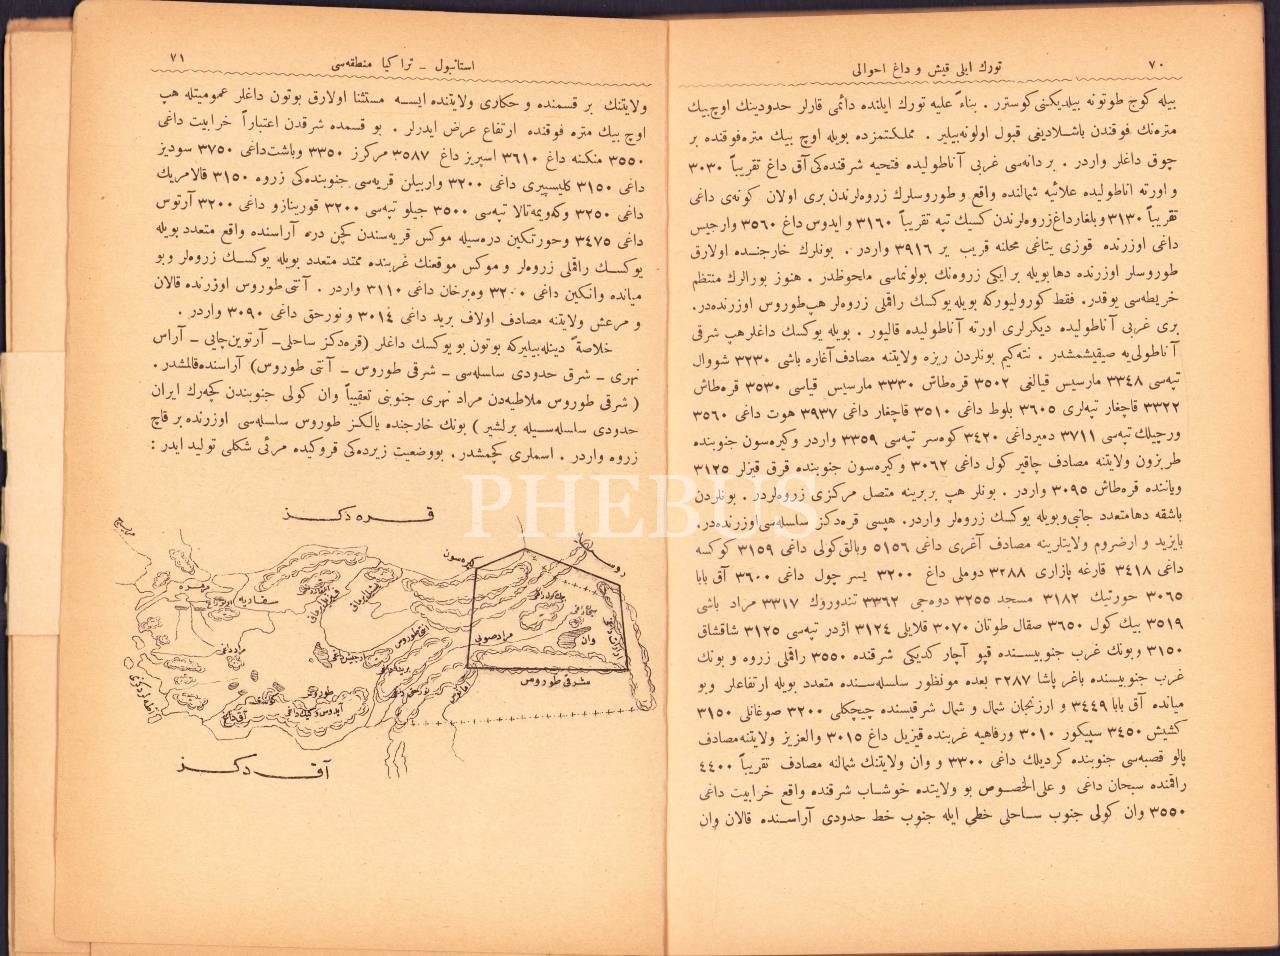 ٧٠
تورك ایلی قیش و داغ احوالی
بیله كوج طوتونه بیلدیكنی كوسترر . بناءً علیه تورك ایلنده دائمی قارلر حدودینك اوچ بیك
متره‌نك فوقندن باشلادیغی قبول اولونه‌بیلیر . مملكتمزده بویله اوچ بیك متره فوقنده بر
چوق داغلر واردر . بر دانه‌سی غربی آناطولیده فتحیه شرقنده‌كی آق داغ تقریباً ٣٠٣٠
و اورته اناطولیده علائیه شمالنده واقع و طوروسلرك زروه‌لرندن بری اولان كوته‌ی داغی
تقریباً ٣١٣٠ وبلغار داغ زروه‌لرندن كسیك تپه تقریباً ٣١٦٠ و ایدوس داغ ٣٥٦٠ وارجیس
داغی اوزرنده قوزی یتاغی محلنه قریب یر ٣٩١٦ واردر . بونلرك خارجنده اولارق
طوروسلر اوزرنده دها بویله بر ایكی زروه‌نك بولونماسی ملحوظدر . هنوز بورالرك منتظم
خریطه‌سی یوقدر . فقط كورولیوركه بویله یوكسك راقملی زروه‌لر هپ طوروس اوزرنده‌در .
بری غربی آناطولیده دیكرلری اورته آناطولیده قالیور . بویله یوكسك داغلر هپ شرقی
آناطولی‌یه صیقیشمشدر . نته‌كیم بونلردن ریزه ولایتنه مصادف آغاره باشی ٣٢٣٠ شووال
تپه‌سی ٣٣٤٨ مارسیس قیالغی ٣٥٠٢ قره‌طاش ٣٣٣٠ مارسیس قیاسی ٣٥٣٠ قره‌طاش
٣٣٢٢ قاچغار تپه‌لری ٣٦٠٥ بلوط داغی ٣٥١٠ قاچغار داغی ٣٩٣٧ هوت داغی ٣٥٦٠
ورچیلك تپه‌سی ٣٧١١ دمیرداغی ٣٤٢٠ كوه‌سر تپه‌سی ٣٣٥٩ واردر وكیره‌سون جنوبنده
طربزون ولایتنه مصادف چاقیر كول داغی ٣٠٦٢ وكیره‌سون جنوبنده قرق قیزلر ٣١٢٥
ویاننده قره‌طاش ٣٠٩٥ واردر . بونلر هپ بربرینه متصل مركزی زروه‌لردر . بونلردن
باشقه دها متعدد جانبی وبویله یوكسك زروه‌لر واردر . هپسی قره‌دكز سلسله‌سی اوزرنده‌در .
بایزید و ارضروم ولایتلرینه مصادف آغری داغی ٥١٥٦ وبالق‌كولی داغی ٣١٥٩ كوكسه
داغی ٣٤١٨ قارغه پازاری ٣٢٨٨ دوملی داغ ٣٢٠٠ یسر چول داغی ٣٦٠٠ آق بابا
٣٠٦٥ حورتیك ٣١٨٢ مسجد ٣٢٥٥ دوه‌جی ٣٣٦٢ تندوروك ٣٣١٧ مراد باشی
٣٥١٩ بیك كول ٣٦٥٠ صقال طوتان ٣٠٧٠ قلایلی ٣١٢٤ اژدر تپه‌سی ٣١٢٥ شاقشاق
٣١٥٠ وبونك غرب جنوبیسنده قپو آچار كدیكی شرقنده ٣٥٥٠ راقملی زروه و بونك
غرب جنوبیسنده باغر پاشا ٣٢٨٧ بعده مونظور سلسله‌سنده متعدد بویله ارتفاعلر وبو
میانده آق بابا ٣٤٤٩ و ارزنجان شمال و شمال شرقیسنده چیچكلی ٣٢٠٠ صوغانلی ٣١٥٠
كشیش ٣٤٥٠ سپیكور ٣٠١٠ ورفاهیه غربنده قیزیل داغ ٣٠١٥ والعزیز ولایتنه مصادف
پالو قصبه‌سی جنوبنده كردیلك داغی ٣٣٠٠ و وان ولایتنك شمالنه مصادف تقریباً ٤٤٠٠
راقمنده سبحان داغی و علی‌الخصوص بو ولایتده خوشاب شرقنده واقع خرابیت داغی
٣٥٥٠ وان كولی جنوب ساحلی خطی ایله جنوب خط حدودی آراسنده قالان وان
استانبول ـ تراكیا منطقه‌سی
٧١
ولایتنك بر قسمنده و حكاری ولایتنده ایسه مستثنا اولارق بوتون داغلر عمومیتله هپ
اوچ بیك متره فوقنده ارتفاع عرض ایدرلر . بو قسمده شرقدن اعتباراً خرابیت داغی
٣٥٥٠ منكنه داغ ٣٦١٠ اسپریز داغ ٣٥٨٧ مركرز ٣٣٥٠ وباشت‌داغی ٣٧٥٠ سودیز
داغی ٣١٥٠ كلیسپیری داغی ٣٢٠٠ واربیلن قریه‌سی جنوبنده‌كی زروه ٣١٥٠ قالامریك
داغی ٣٢٥٠ وكه‌ویمه‌تالا تپه‌سی ٣٥٠٠ جیلو تپه‌سی ٣٢٠٠ قورینازو داغی ٣٢٠٠ آرتوس
داغی ٣٤٧٥ وحورتكین دره‌سیله موكس قریه‌سندن كچن دره آراسنده واقع متعدد بویله
یوكسك راقملی زروه‌لر و موكس موقعنك غربنده ممتد متعدد بویله یوكسك زروه‌لر وبو
میانده وانكین داغی ٣٢٠٠ وه‌برخان داغی ٣١١٠ واردر . آنتی طوروس اوزرنده قالان
و مرعش ولایتنه مصادف اولاف برید داغی ٣٠١٤ و نورحق داغی ٣٠٩٠ واردر .
خلاصةً دینله‌بیلیركه بوتون بو یوكسك داغلر (قره‌دكز ساحلی ـ آرتوین‌چایی ـ آراس
نهری ـ شرق حدودی سلسله‌سی ـ شرقی طوروس ـ آنتی طوروس) آراسنده قالمشدر .
( شرقی طوروس ملاطیه‌دن مراد نهری جنوبنی تعقیباً وان كولی جنوبندن كچه‌رك ایران
حدودی سلسله‌سیله برلشیر ) بونك خارجنده یالكز طوروس سلسله‌سی اوزرنده بر قاچ
زروه واردر . اسملری كچمشدر . بو وضعیت زیرده‌كی قروكیده مرئی شكلی تولید ایدر :
قره دكز
مریج
كیره‌سون
روسیه
بروسه
سقاریه
مراد صوبی
وان
مراد داغی
ارجیش داغی
آنتی طوروس
شرقی طوروس
طوروس
آق داغ
اطه‌لر دكزی
آق دكز
PHEBUS